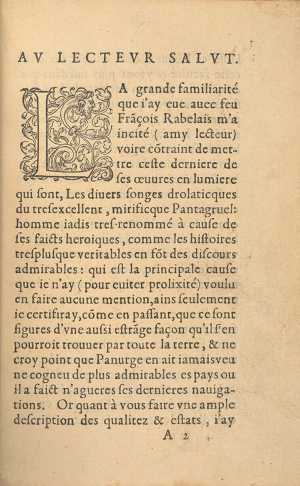 AV LECTEVR SALVT.
LA grande familiarité
que i'ay eue auec feu
Frãçois Rabelais m'a
incité ( amy lecteur)
voire cõtraint de met-
tre ceste derniere de
ses œuures en lumiere
qui sont, Les diuers songes drolaticques
du tresexcellent, mirifique Pantagruel:
homme iadis tres-renommé à cause de
ses faicts heroiques, comme les histoires
tresplusque veritables en fõt des discours
admirables: qui est la principale cause
que ie n'ay (pour euiter prolixité) voulu
en faire aucune mention, ains seulement
ie certifiray, cõme en passant, que ce sont
figures d'vne aussi estrãge façon qu'il s'en
pourroit trouuer par toute la terre, & ne
croy point que Panurge en ait iamais veu
ne cogneu de plus admirables es pays ou
il a faict n'agueres ses dernieres nauiga-
tions. Or quant à vous faire vne ample
description des qualitez & estats, i'ay
A 2